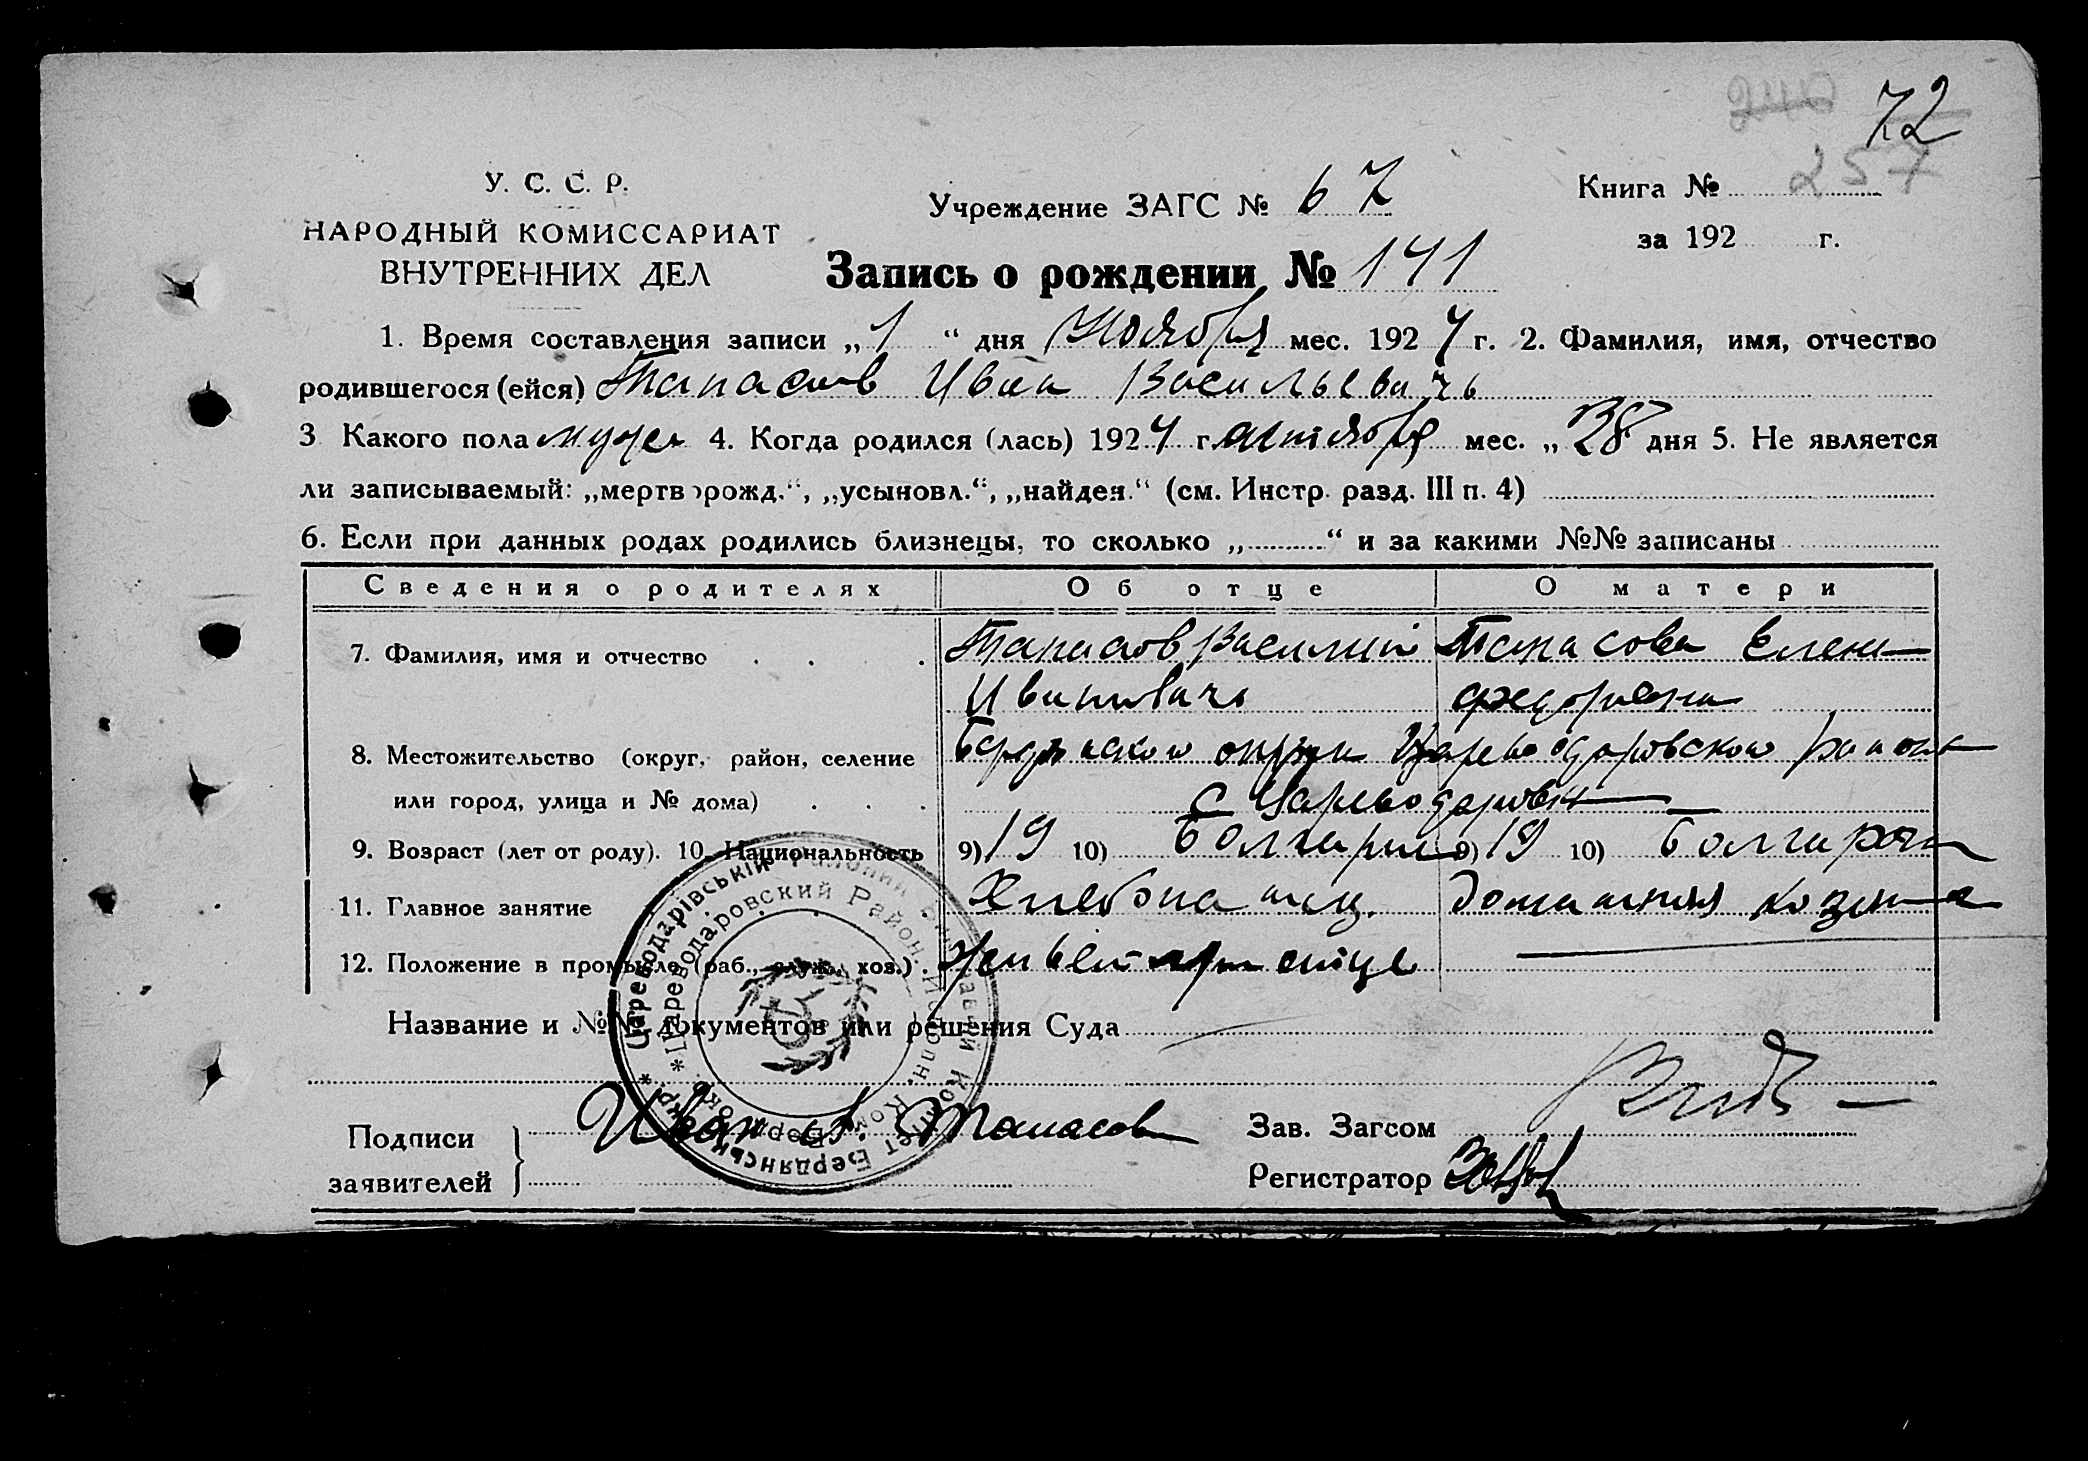 240 72
У. С. С. Р. Учреждение ЗАГС № 67 Книга № 257
НАРОДНЫЙ КОМИССАРИАТ за 192 г.
ВНУТРЕННИХ ДЕЛ Запись о рождении № 141
1. Время составления записи „ 1 “ дня Ноября мес. 1924 г. 2. Фамилия, имя, отчество
родившегося (ейся) Танасов Иван Васильевичь
3 Какого пола мужск 4. Когда родился (лась) 1924 г. октября мес. „ 28 дня 5. Не является
ли записываемый: „мертворожд.“, „усыновл.“, „найден.“ (см. Инстр. разд. III п. 4)
6. Если при данных родах родились близнецы, то сколько „ “ и за какими №№ записаны
Сведения о родителях Об отце О матери
7. Фамилия, имя и отчество Танасов Василий Танасова Елена
Ивановичь Федоровна
8. Местожительство (округ, район, селение Бердянского округа Цареводаровского района
или город, улица и № дома) с Цареводаровка
9. Возраст (лет от роду). 10. Национальность 9) 19 10) Болгарин 9) 19 10) Болгарка
11. Главное занятие Хлебопашец. Домашняя
12. Положение в промысле (раб., служ., хоз.) живет при отце
Название и №№ документов или решения Суда
Подписи Иван Танасов Зав. Загсом
заявителей Регистратор
Цареводарівській Районний Виконавчий Комітет Бердянської Окр. *
* Цареводаровский Район. Исполн. Ком. Бердян. Окр.